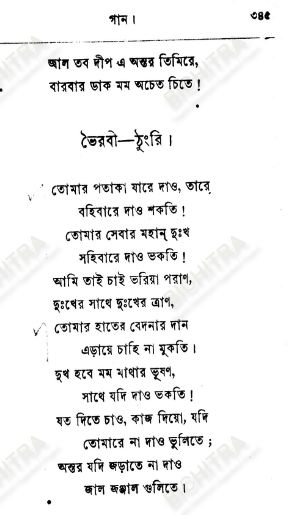 গান।
৩৪৫
জ্বাল তব দীপ এ অন্তর তিমিরে,
বারবার ডাক মম অচেত চিতে!
ভৈরবী—ঠুংরি।
তোমার পতাকা যারে দাও, তারে
বহিবারে দাও শকতি!
তোমার সেবার মহান্ দুঃখ
সহিবারে দাও ভকতি!
আমি তাই চাই ভরিয়া পরাণ,
দুঃখের সাথে দুঃখের ত্রাণ,
তোমার হাতের বেদনার দান
এড়ায়ে চাহি না মুকতি।
দুখ হবে মম মাথার ভূষণ,
সাথে যদি দাও ভকতি!
যত দিতে চাও, কাজ দিয়ো, যদি
তোমারে না দাও ভুলিতে;
অন্তর যদি জড়াতে না দাও
জাল জঞ্জাল গুলিতে।
BICHITRA